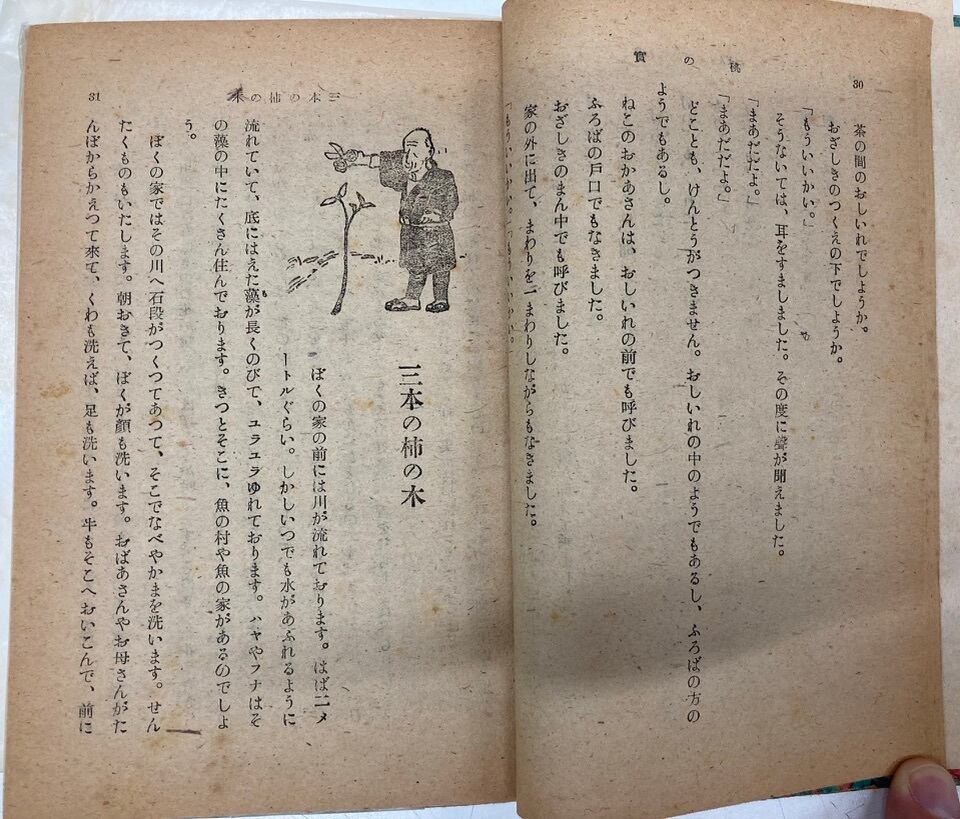 桃の實
30
茶の間のおしいれでしようか。
おざしきのつくえの下でしようか。
「もういいかい。」
そうないては、耳をすましました。その度に聲が聞えました。
「まあだだよ。」
「まあだだよ。」
どことも、けんとうがつきません。おしいれの中のようでもあるし、ふろばの方の
ようでもあるし。
ねこのおかあさんは、おしいれの前でも呼びました。
ふろばの戸口でもなきました。
おざしきのまん中でも呼びました。
家の外に出て、まわりを一まわりしながらもなきました。
「もういいかい。」「もういいかい。」
三本の柿の木
31
三本の柿の木
ぼくの家の前には川が流れております。はば二メ
ートルぐらい。しかしいつでも水があふれるように
流れていて、底にはえた藻が長くのびて、ユラユラゆれております。ハヤやフナはそ
の藻の中にたくさん住んでおります。きつとそこに、魚の村や魚の家があるのでしよ
う。
ぼくの家ではその川へ石段がつくつてあつて、そこでなべやかまを洗います。せん
たくものもいたします。朝おきて、ぼくが顔も洗います。おばあさんやお母さんがた
んぼからかえつて來て、くわも洗えば、足も洗います。牛もそこへおいこんで、前に